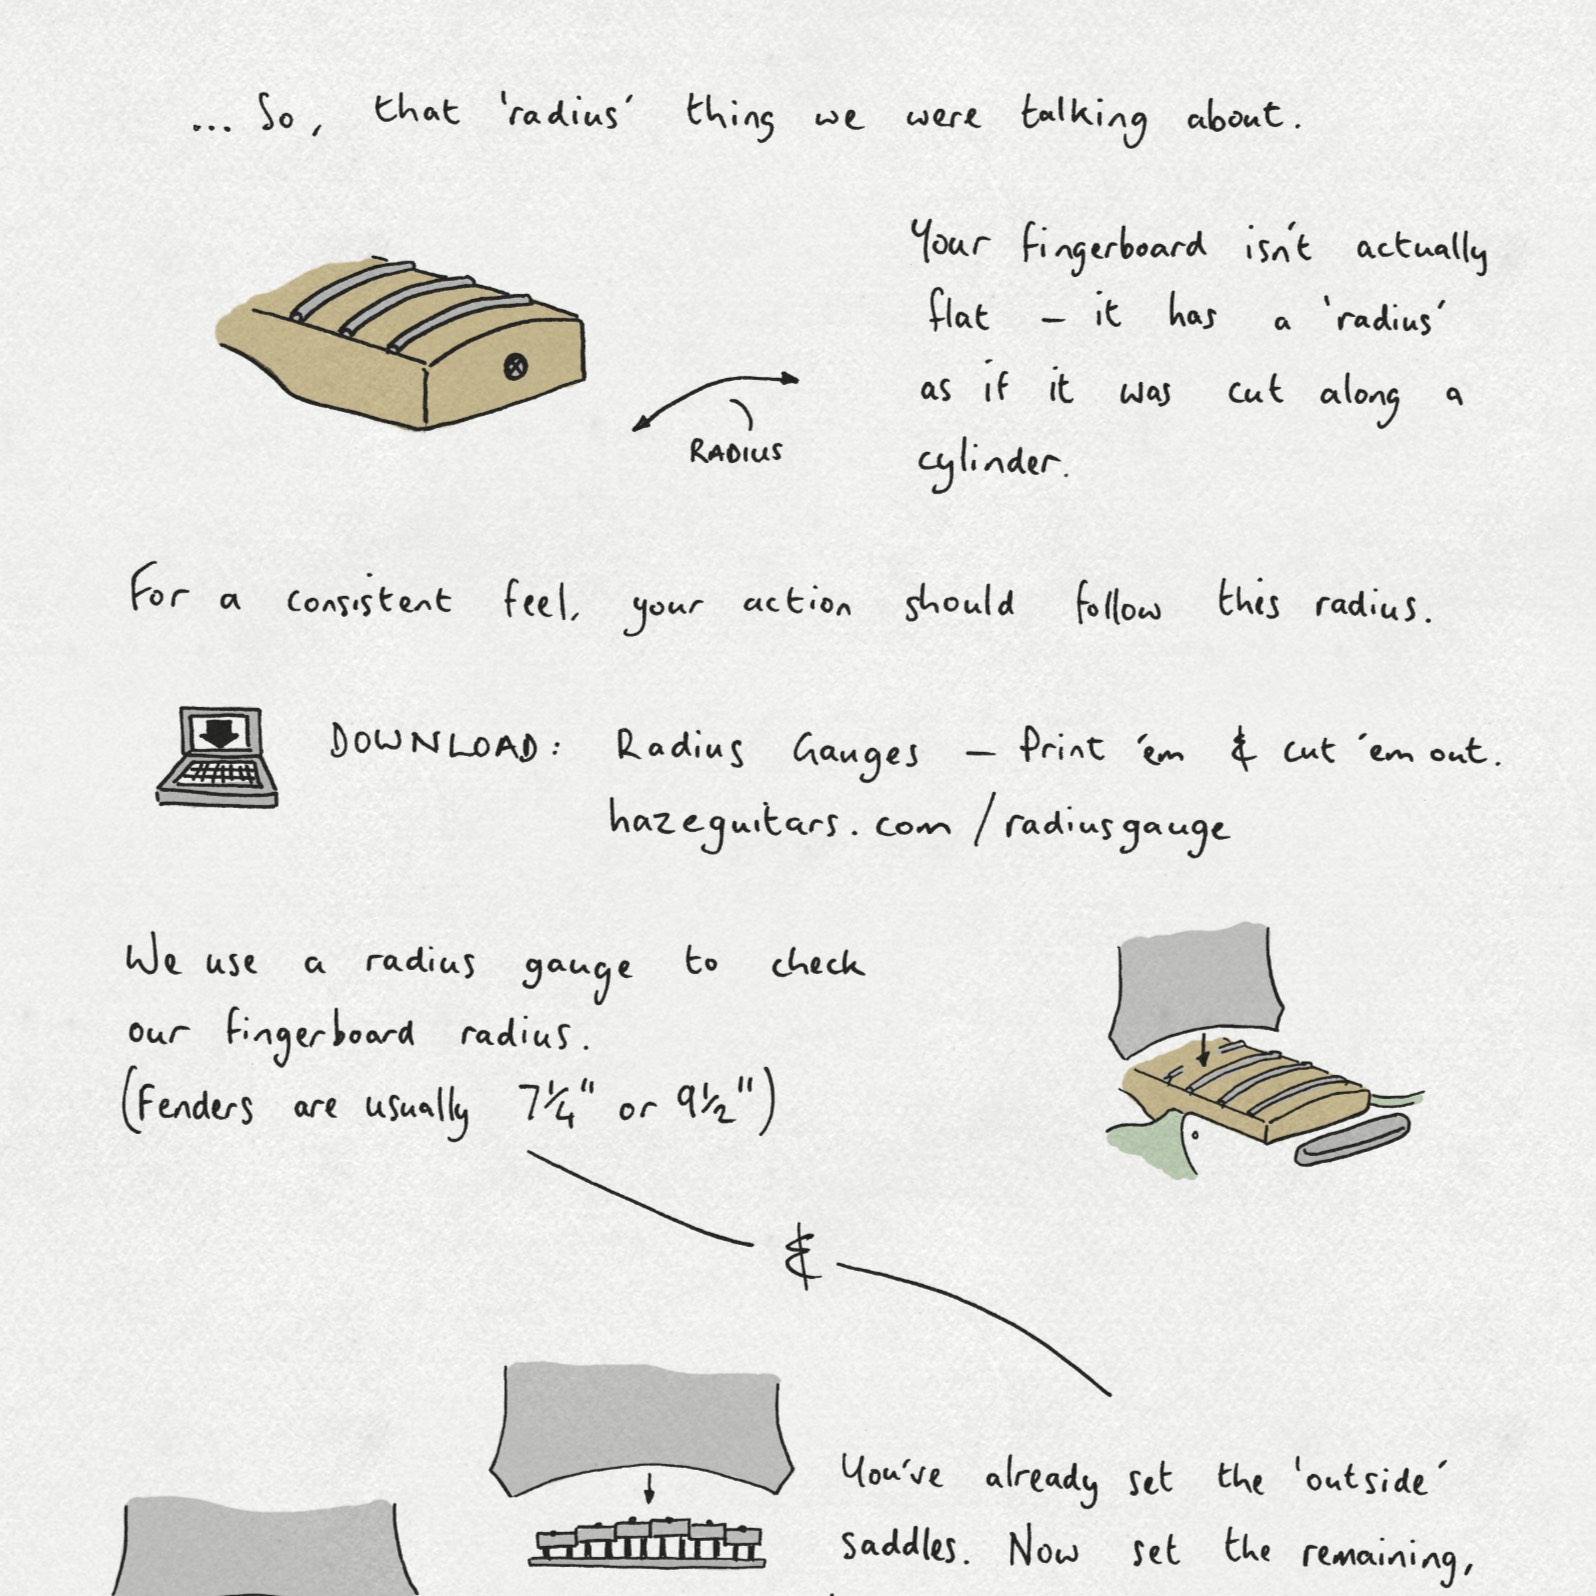 ... So, that 'radius' thing we were talking about.
Your fingerboard isn't actually
flat – it has a 'radius'
as if it was cut along a
cylinder.
RADIUS
For a consistent feel, your action should follow this radius.
DOWNLOAD: Radius Gauges – Print 'em & cut 'em out.
hazeguitars.com/radiusgauge
We use a radius gauge to check
our fingerboard radius.
(Fenders are usually 7¼" or 9½")
&
You've already set the 'outside'
saddles. Now set the remaining,